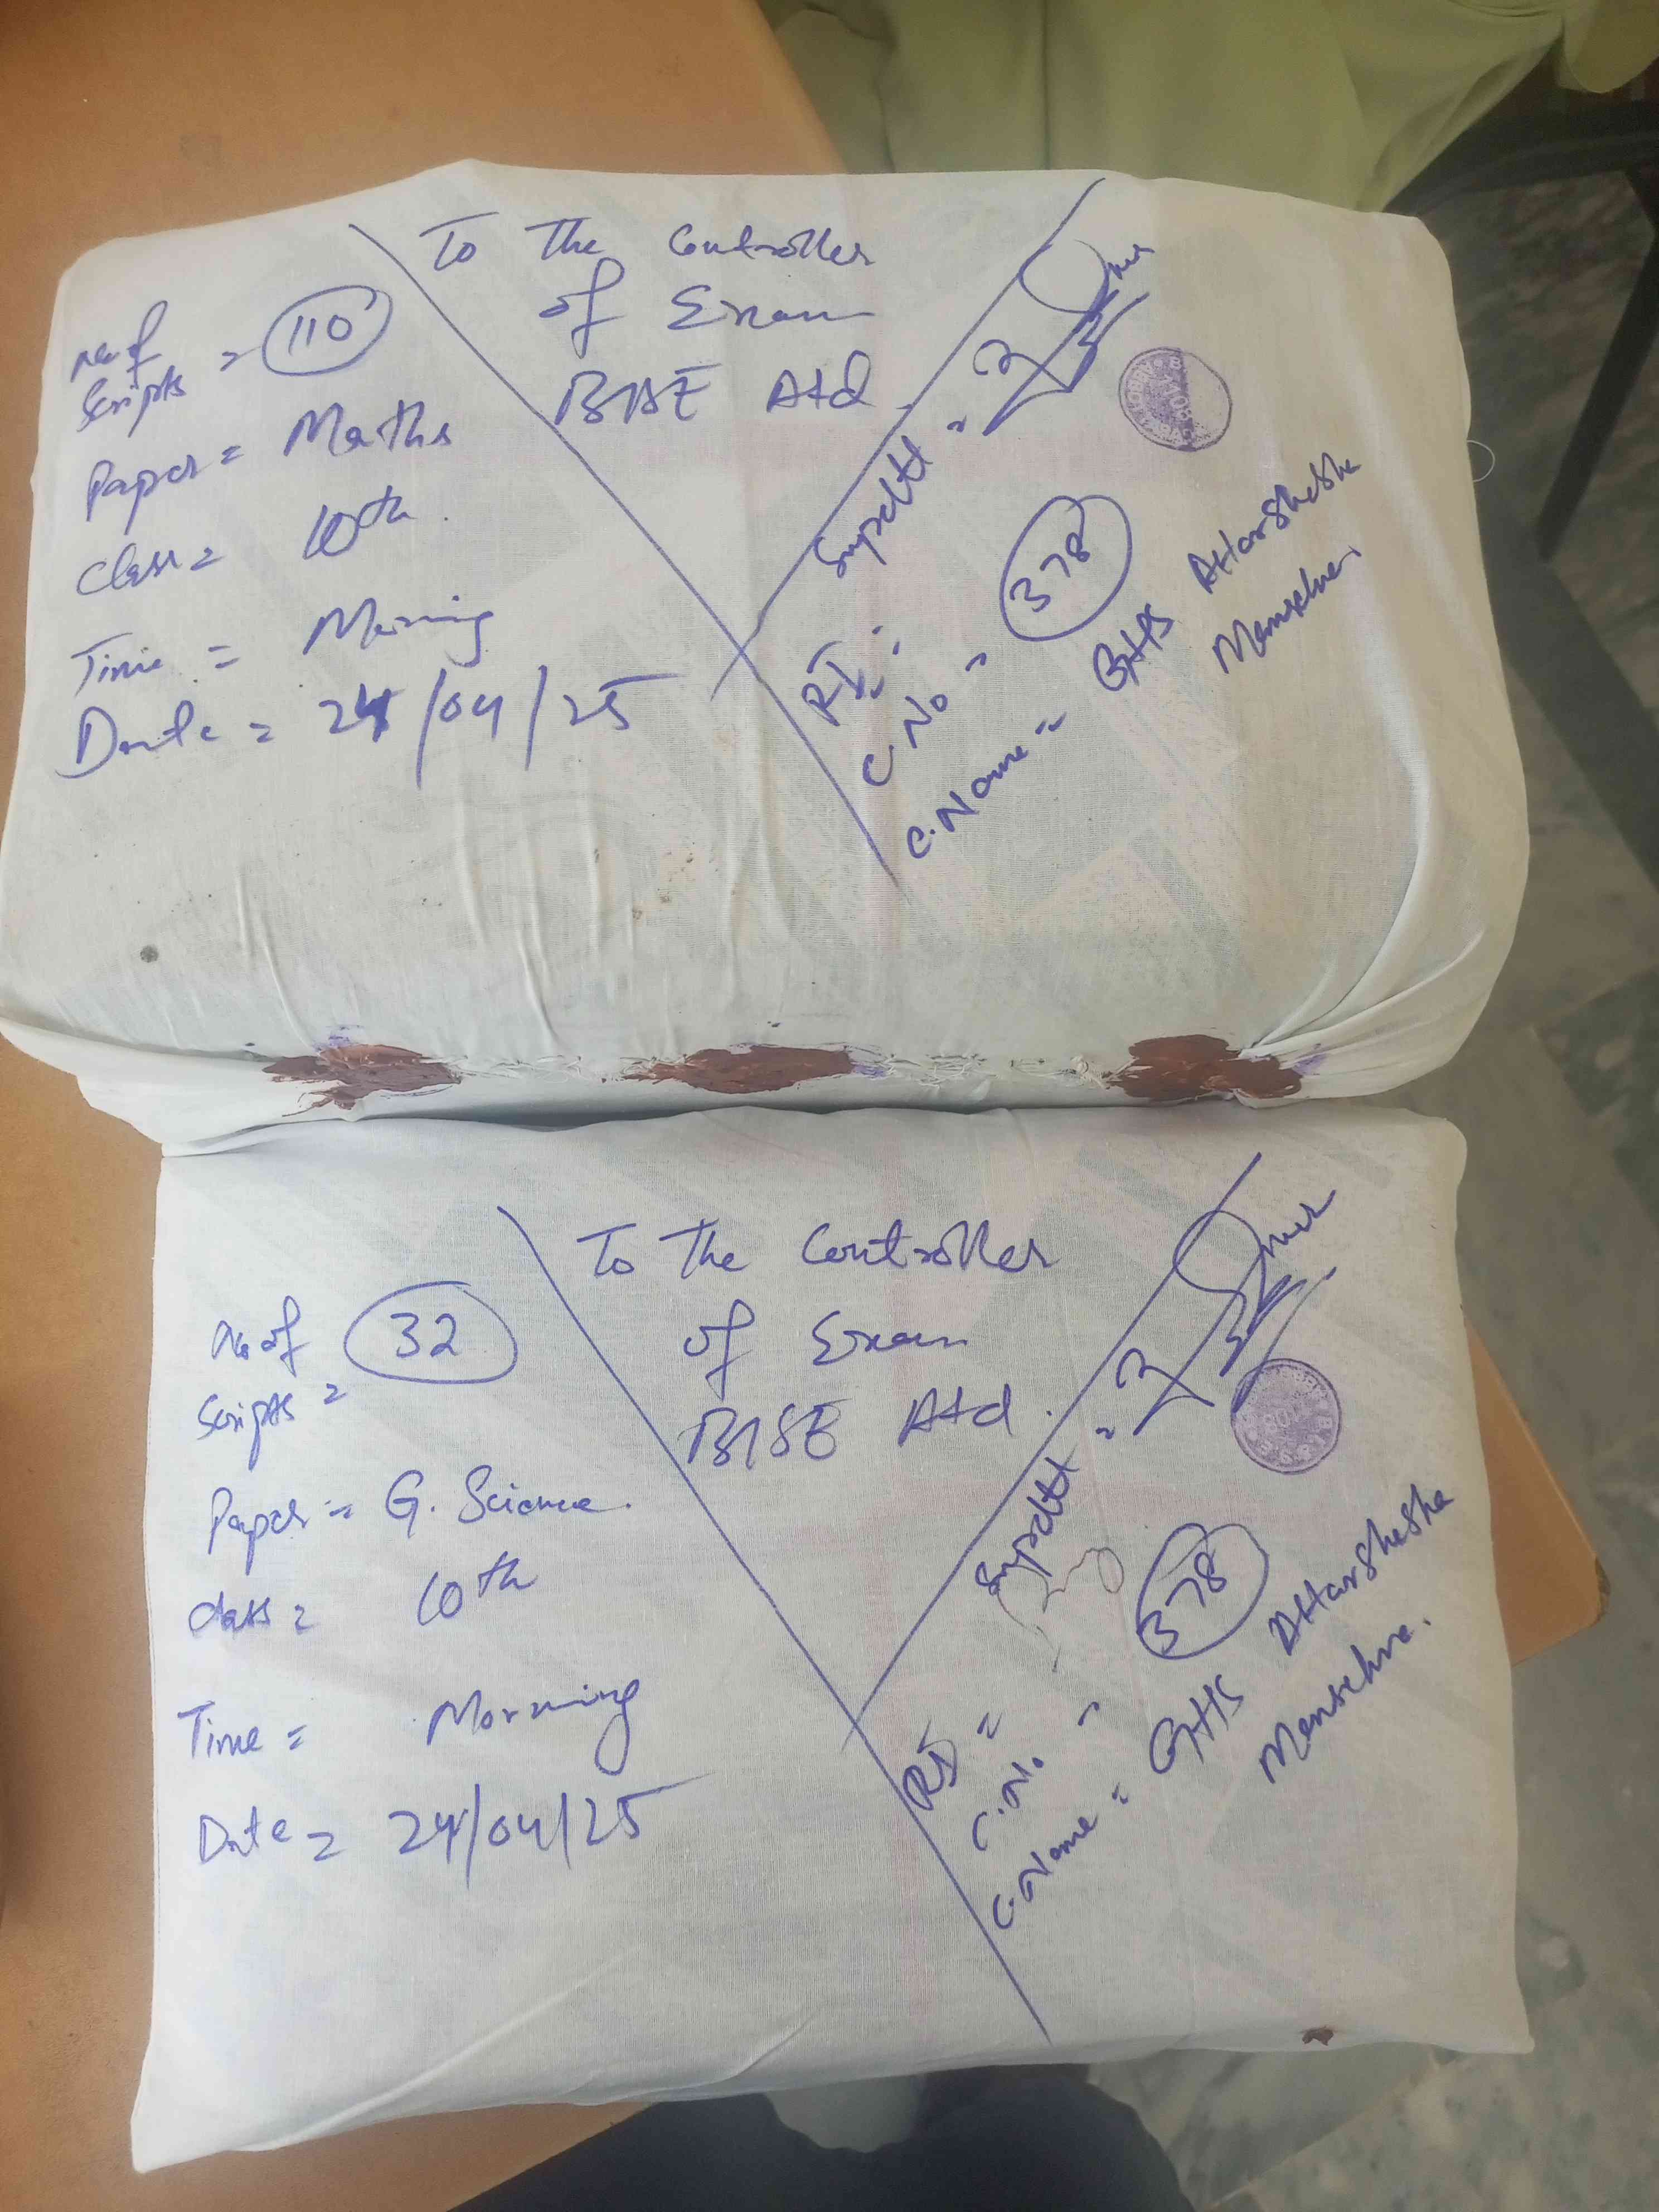 To The Controller
of Exam
BISE Atd.
No of
Scripts = 110
Paper = Maths
Class = 10th.
Time = Morning
Date = 24/04/25
Supdtt =
RI =
C. No = 378
C. Name = GHS Attarshesha
Mansehra.
To The Controller
of Exam
BISE Atd.
No of
Scripts = 32
Paper = G. Science.
class = 10th
Time = Morning
Date = 24/04/25
Supdtt =
RI =
C. No = 378
C. Name = GHS Attarshesha
Mansehra.